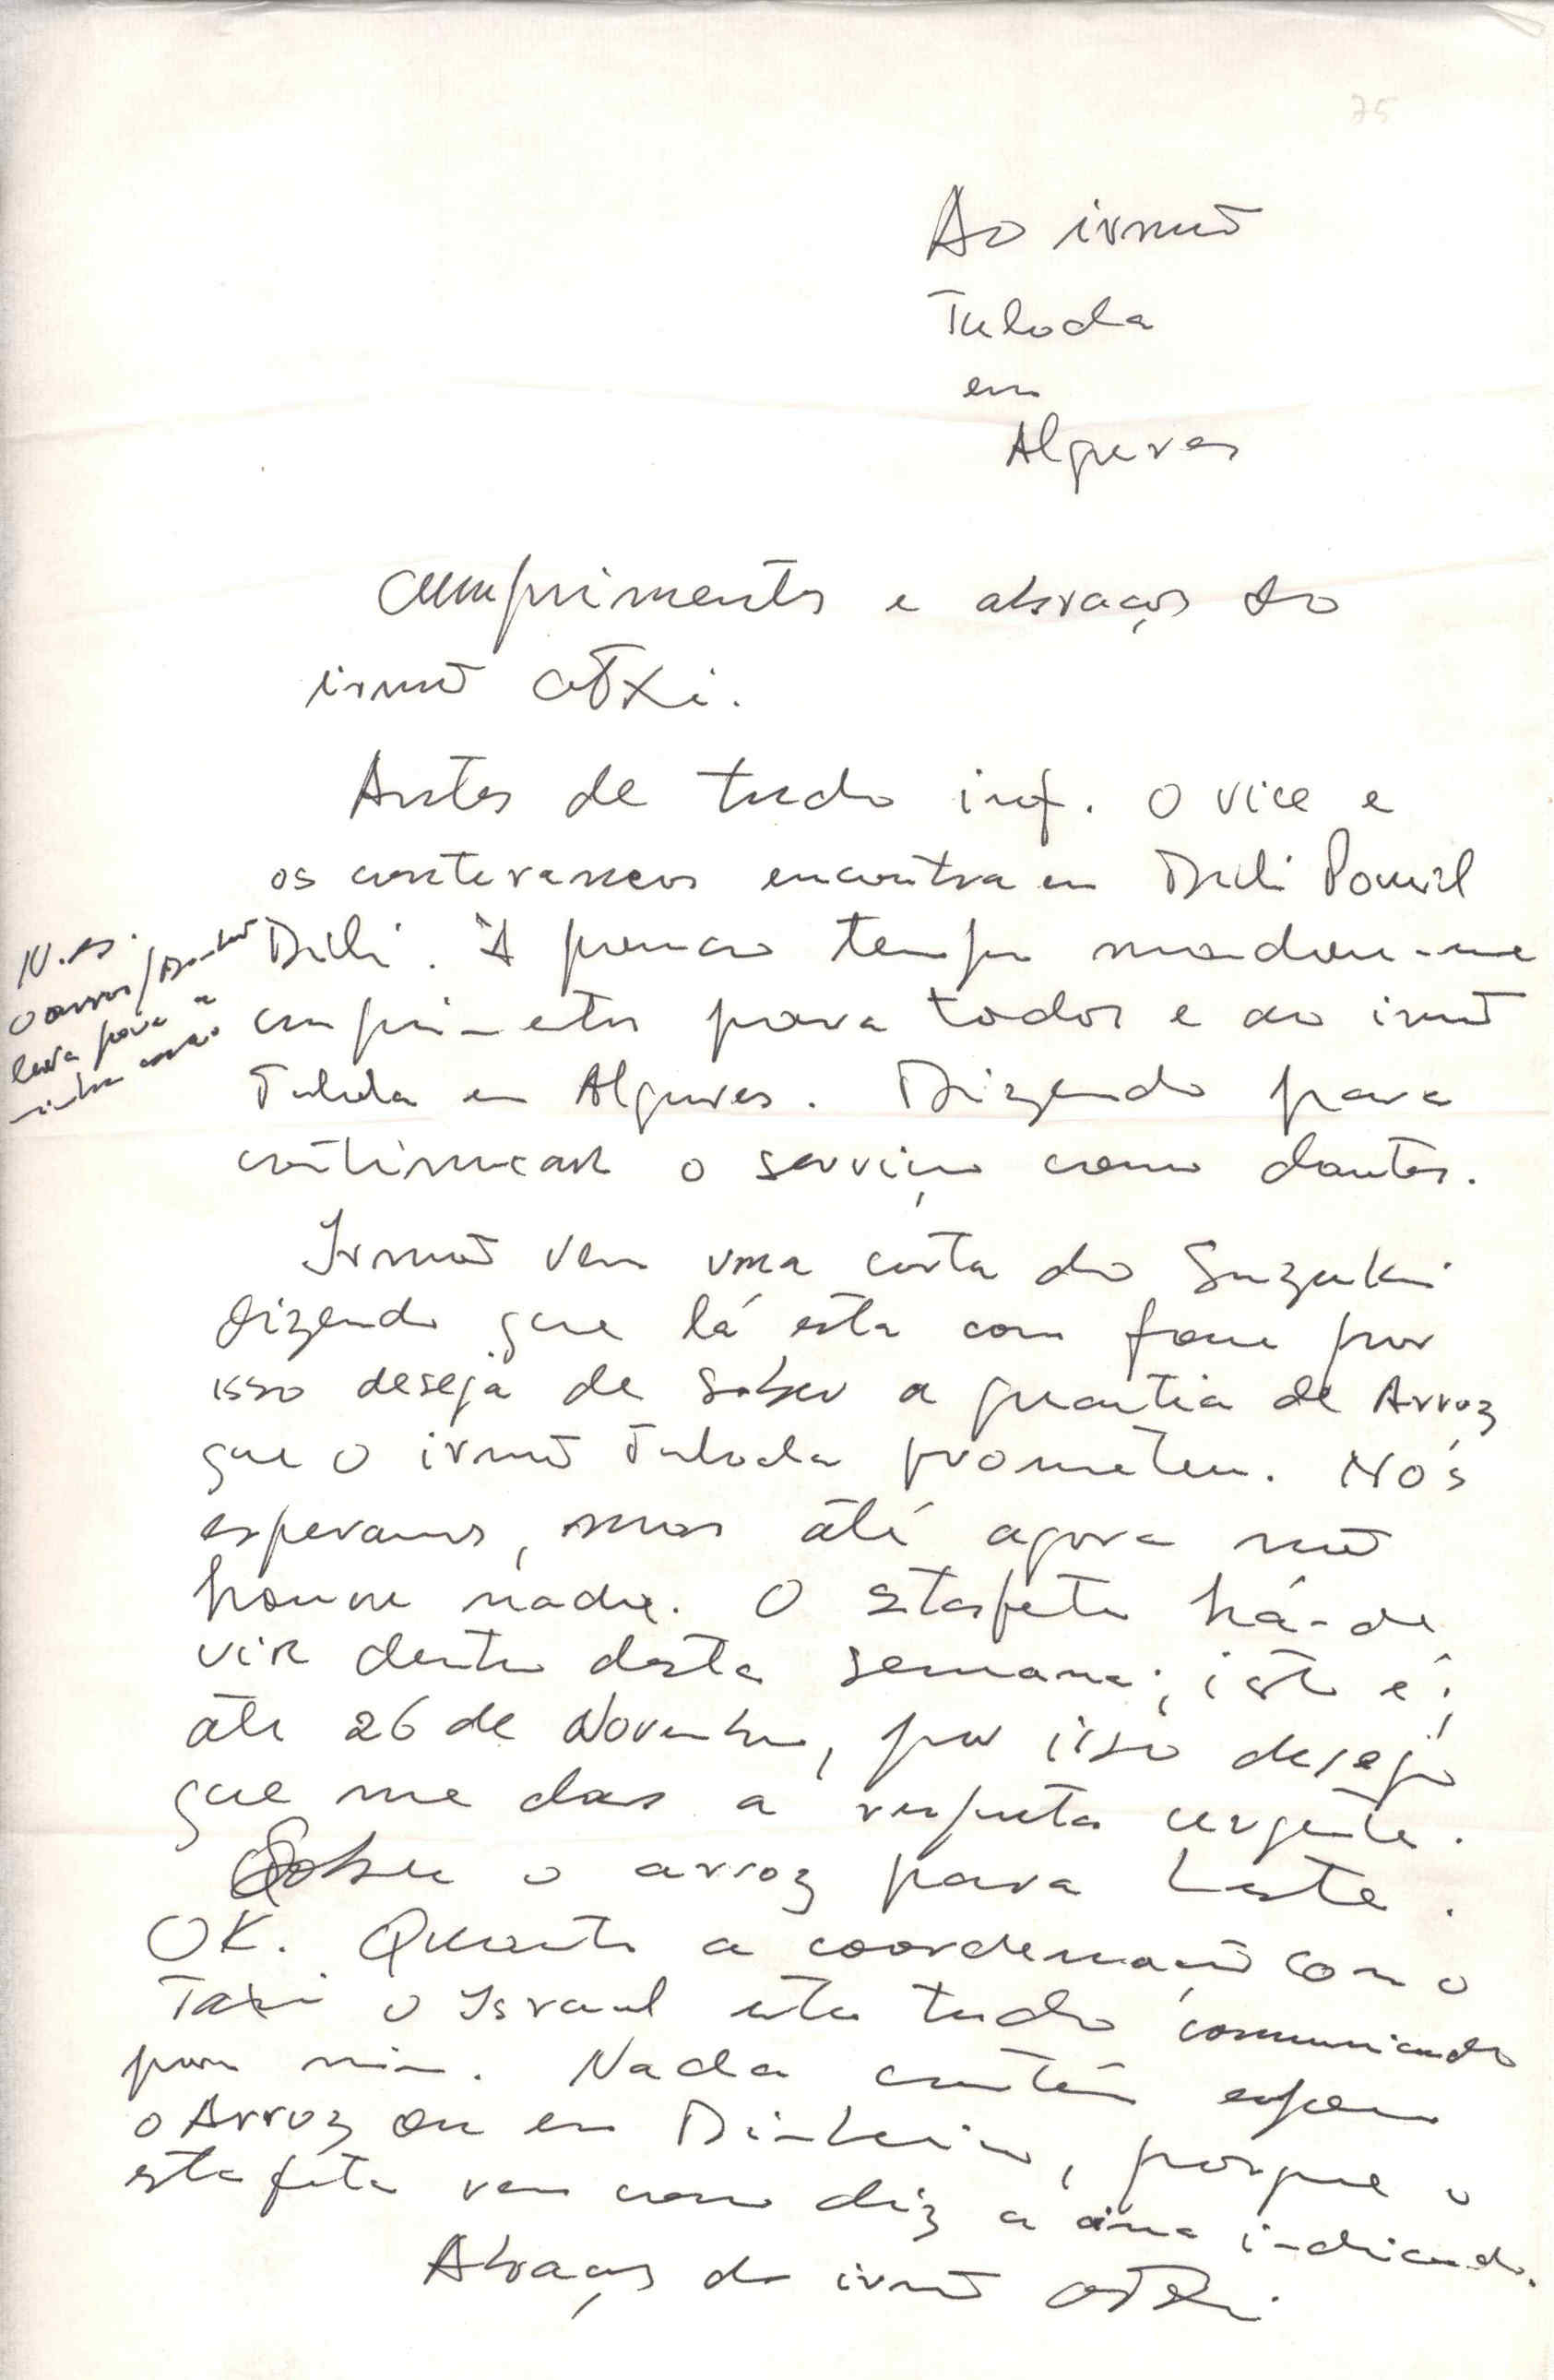 75
Ao irmão
Tuloda
em
Algures
Cumprimentos e abraços do
irmão
Antes de tudo inf. O vice e
os conterraneos encontra em Dili
Dili. A pouco tempo mandou-me
cumprimentos para todos e ao irmão
Tuloda em Algures. Dizendo para
continuar o serviço como dantes.
Irmão vem uma carta do Suzuki
dizendo que lá esta com fome por
isso deseja de saber a quantia de Arroz
que o irmão Tuloda prometeu. Nós
esperamos, mas até agora não
houve nada. O Estafeta há-de
vir dentro desta semana; isto é;
até 26 de Novembro, por isso desejo
que me das a resposta urgente.
Sobre o arroz para Leste.
OK. Quanto a coordenação com o
Taxi o Israel esta tudo comunicando
por mim. Nada contém espero
o Arroz ou em Dinheiro, porque o
estafeta vem como diz a cima indicando.
Abraços do irmão
N.es.
o arroz/Dinheiro
leva para a
minha casa.